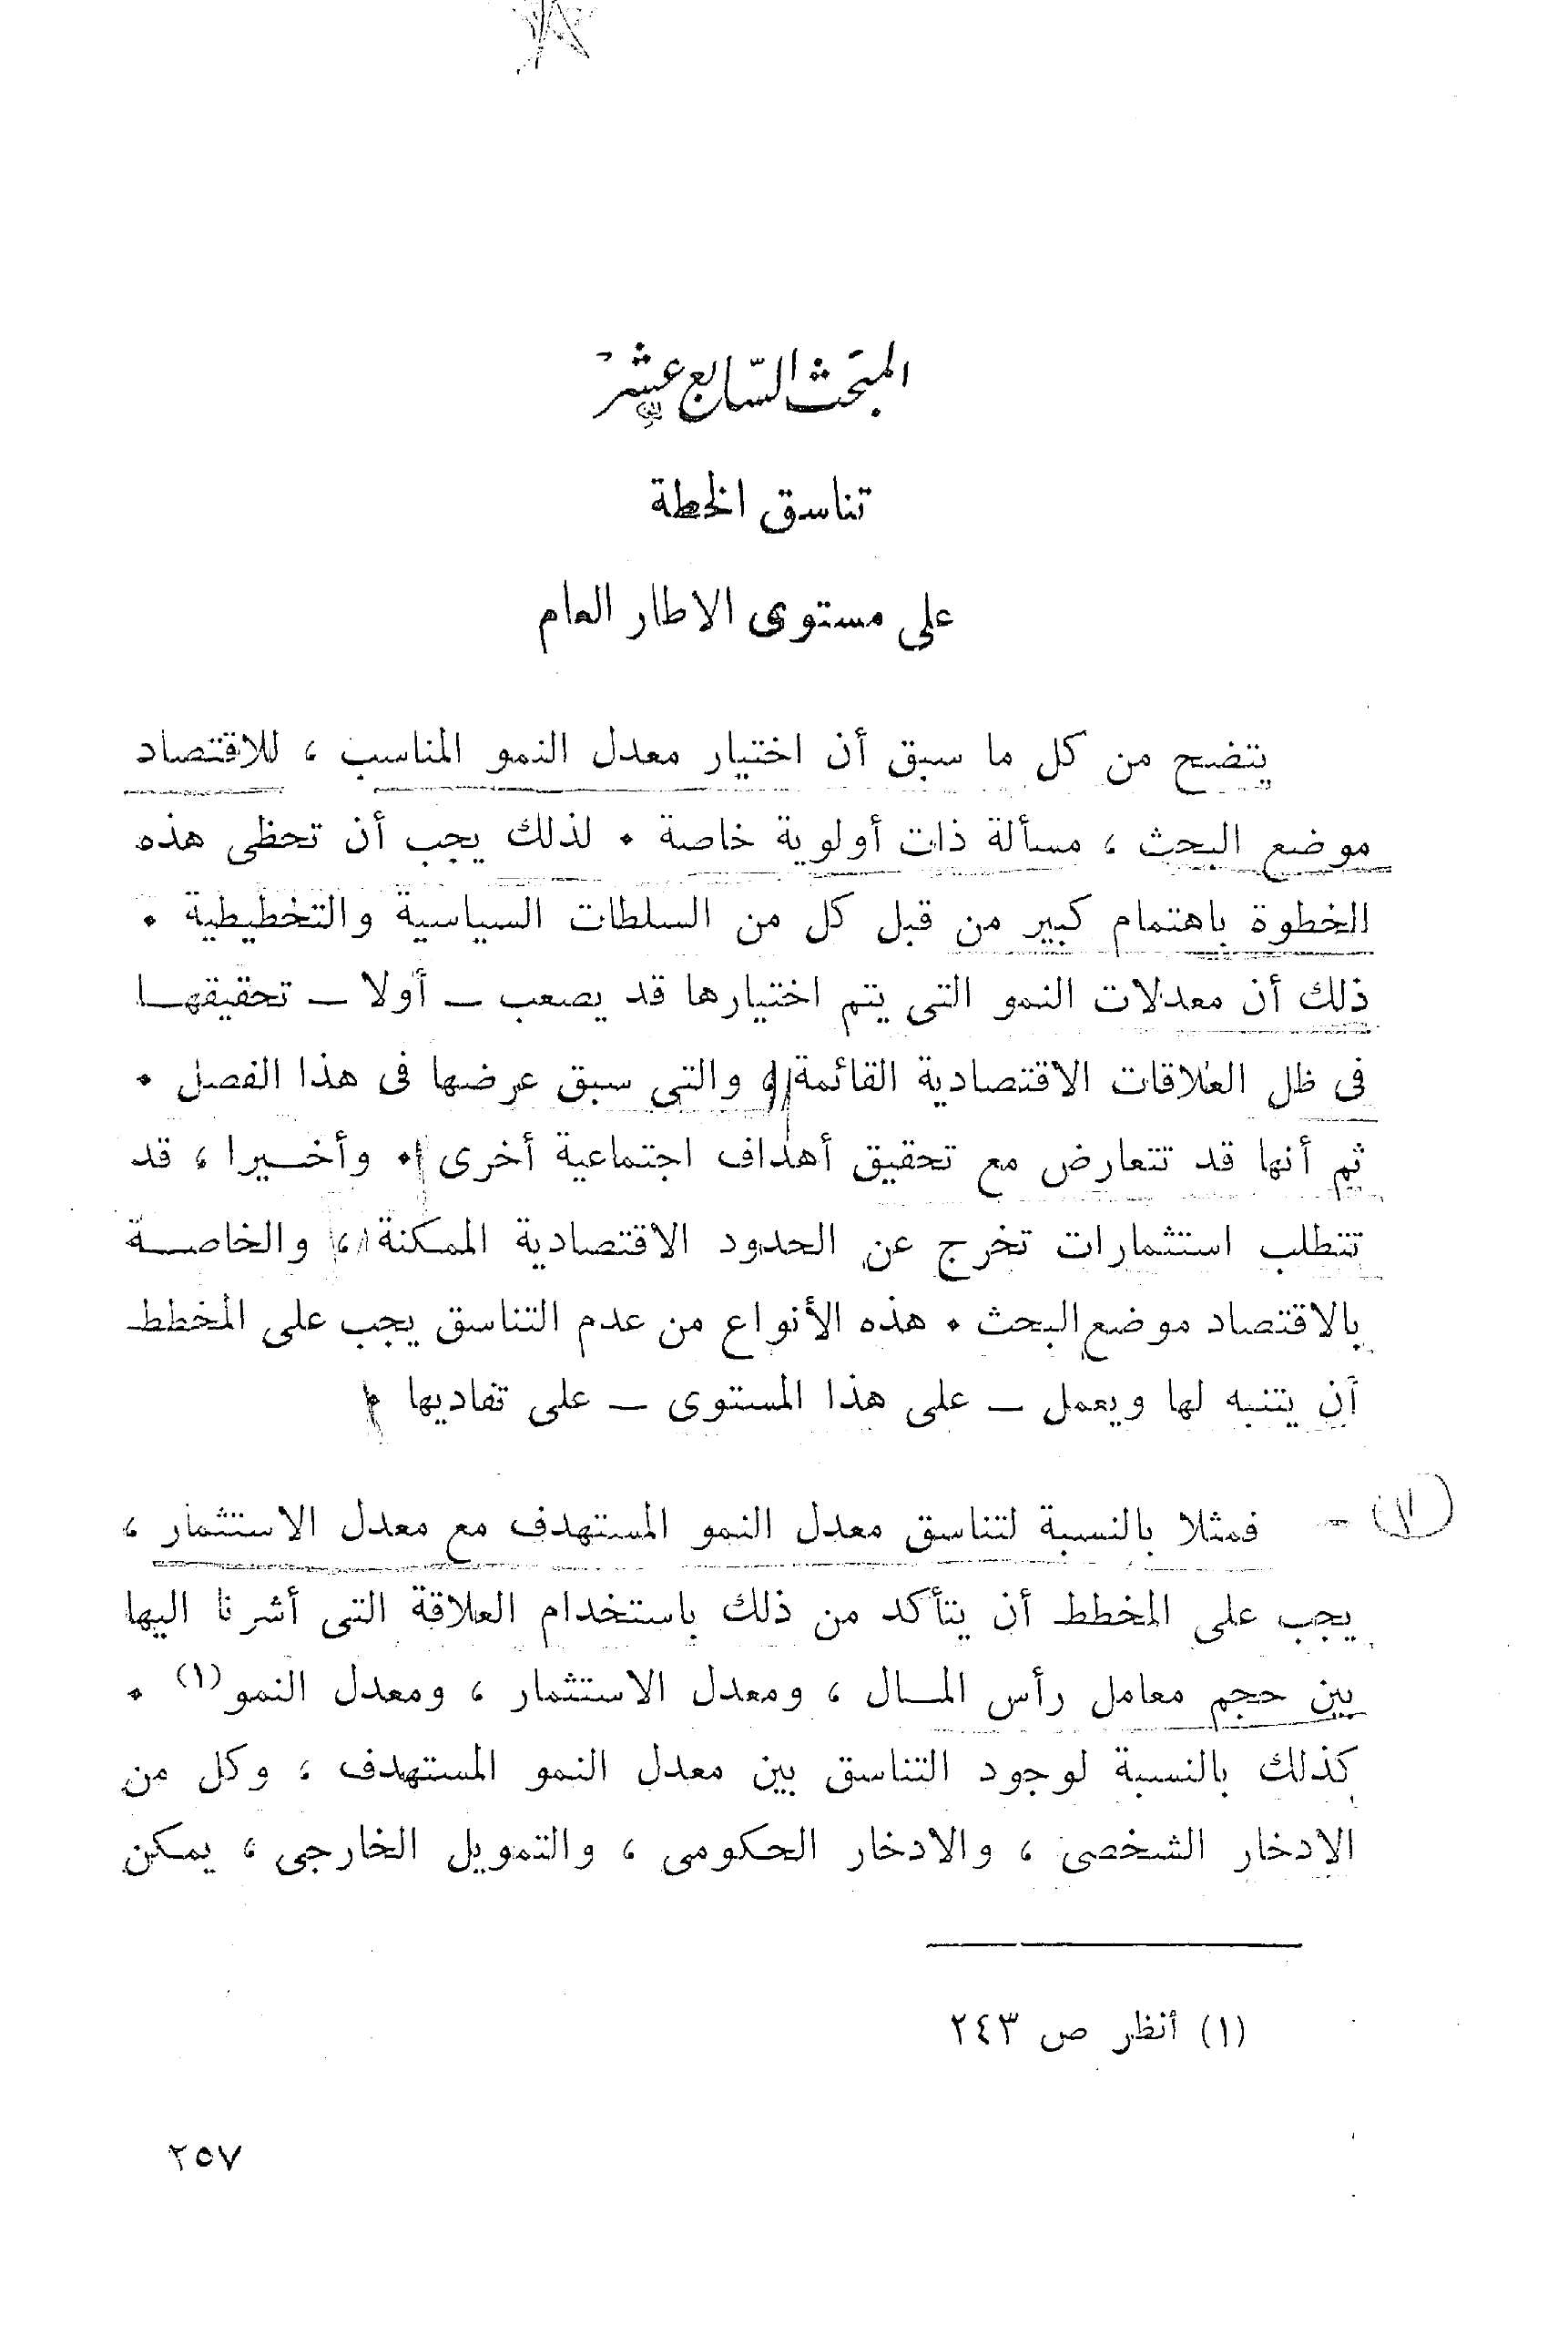 المبحث السابع عشر
تناسق الخطة
على مستوى الاطار العام
يتضح من كل ما سبق أن اختيار معدل النمو المناسب ، للاقتصاد
موضع البحث ، مسألة ذات أولوية خاصة . لذلك يجب أن تحظى هذه
الخطوة باهتمام كبير من قبل كل من السلطات السياسية والتخطيطية .
ذلك أن معدلات النمو التى يتم اختيارها قد يصعب ــ أولا ــ تحقيقهــا
فى ظل العلاقات الاقتصادية القائمة ، والتى سبق عرضها فى هذا الفصل .
ثم أنها قد تتعارض مع تحقيق أهداف اجتماعية أخرى . وأخــيرا ، قد
تتطلب استثمارات تخرج عن الحدود الاقتصادية الممكنة ، والخاصــة
بالاقتصاد موضع البحث . هذه الأنواع من عدم التناسق يجب على المخطط
أن يتنبه لها ويعمل ــ على هذا المستوى ــ على تفاديها .
فمثلا بالنسبة لتناسق معدل النمو المستهدف مع معدل الاستثمار ،
يجب على المخطط أن يتأكد من ذلك باستخدام العلاقة التى أشرنا اليها
بين حجم معامل رأس المــال ، ومعدل الاستثمار ، ومعدل النمو(١) .
كذلك بالنسبة لوجود التناسق بين معدل النمو المستهدف ، وكل من
الادخار الشخصى ، والادخار الحكومى ، والتمويل الخارجى ، يمكن
(١) أنظر ص ٢٤٣
٢٥٧